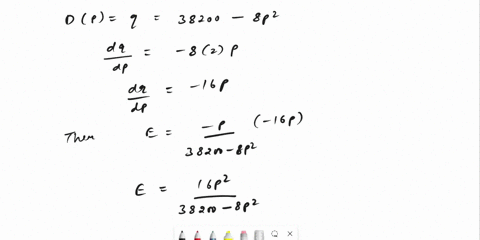 D(p) = q = 38200 - 8p²
dq/dp = -8(2)p
dq/dp = -16p
Then E = -p/(38200-8p²) (-16p)
E = 16p²/(38200-8p²)